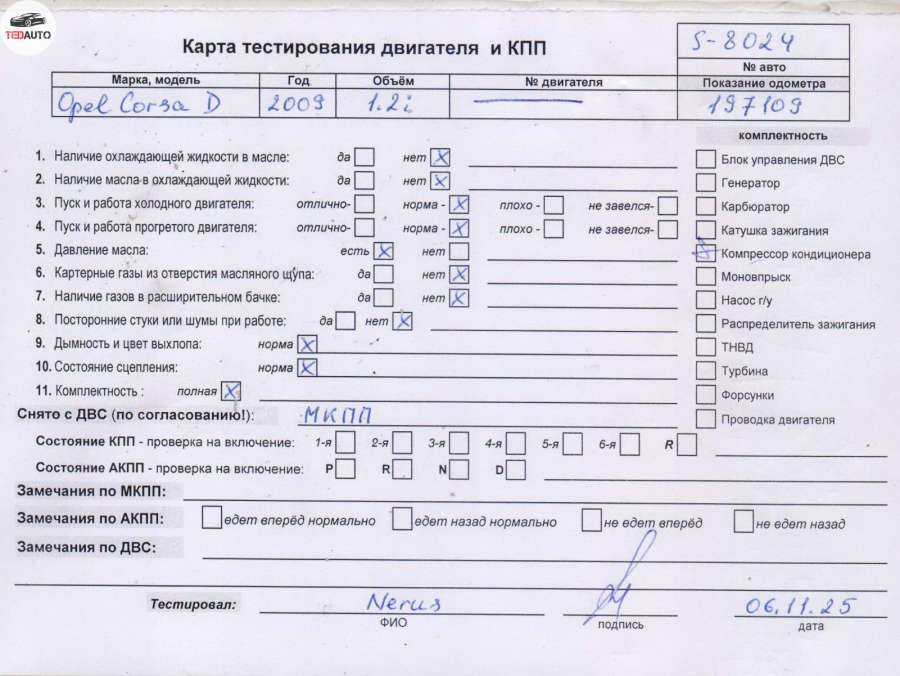 TEDAUTO
Карта тестирования двигателя и КПП
S-8024
№ авто
Марка, модель Год Объём № двигателя Показание одометра
Opel Corsa D 2009 1.2i 197109
комплектность
1. Наличие охлаждающей жидкости в масле: да нет X
Блок управления ДВС
2. Наличие масла в охлаждающей жидкости: да нет X
Генератор
3. Пуск и работа холодного двигателя: отлично- норма - X плохо - не завелся-
Карбюратор
4. Пуск и работа прогретого двигателя: отлично- норма - X плохо - не завелся-
Катушка зажигания
5. Давление масла: есть X нет
Компрессор кондиционера
6. Картерные газы из отверстия масляного щупа: да нет X
Моновпрыск
7. Наличие газов в расширительном бачке: да нет X
Насос г/у
8. Посторонние стуки или шумы при работе: да нет X
Распределитель зажигания
9. Дымность и цвет выхлопа: норма X
ТНВД
10. Состояние сцепления: норма X
Турбина
11. Комплектность : полная X
Форсунки
Снято с ДВС (по согласованию!): МКПП
Проводка двигателя
Состояние КПП - проверка на включение: 1-я 2-я 3-я 4-я 5-я 6-я R
Состояние АКПП - проверка на включение: P R N D
Замечания по МКПП:
Замечания по АКПП: едет вперёд нормально едет назад нормально не едет вперёд не едет назад
Замечания по ДВС:
Тестировал: Nerus 06.11.25
ФИО подпись дата